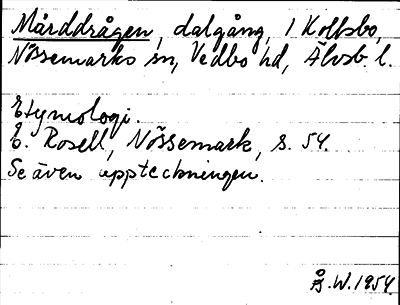 Mårddrågen, dalgång, i Kollsbo,
Nössemarks sn, Vedbo hd, Älvsb. l.
Etymologi.
E. Rosell, Nössemark, s. 54.
Se även uppteckningen.
Å.W. 1954